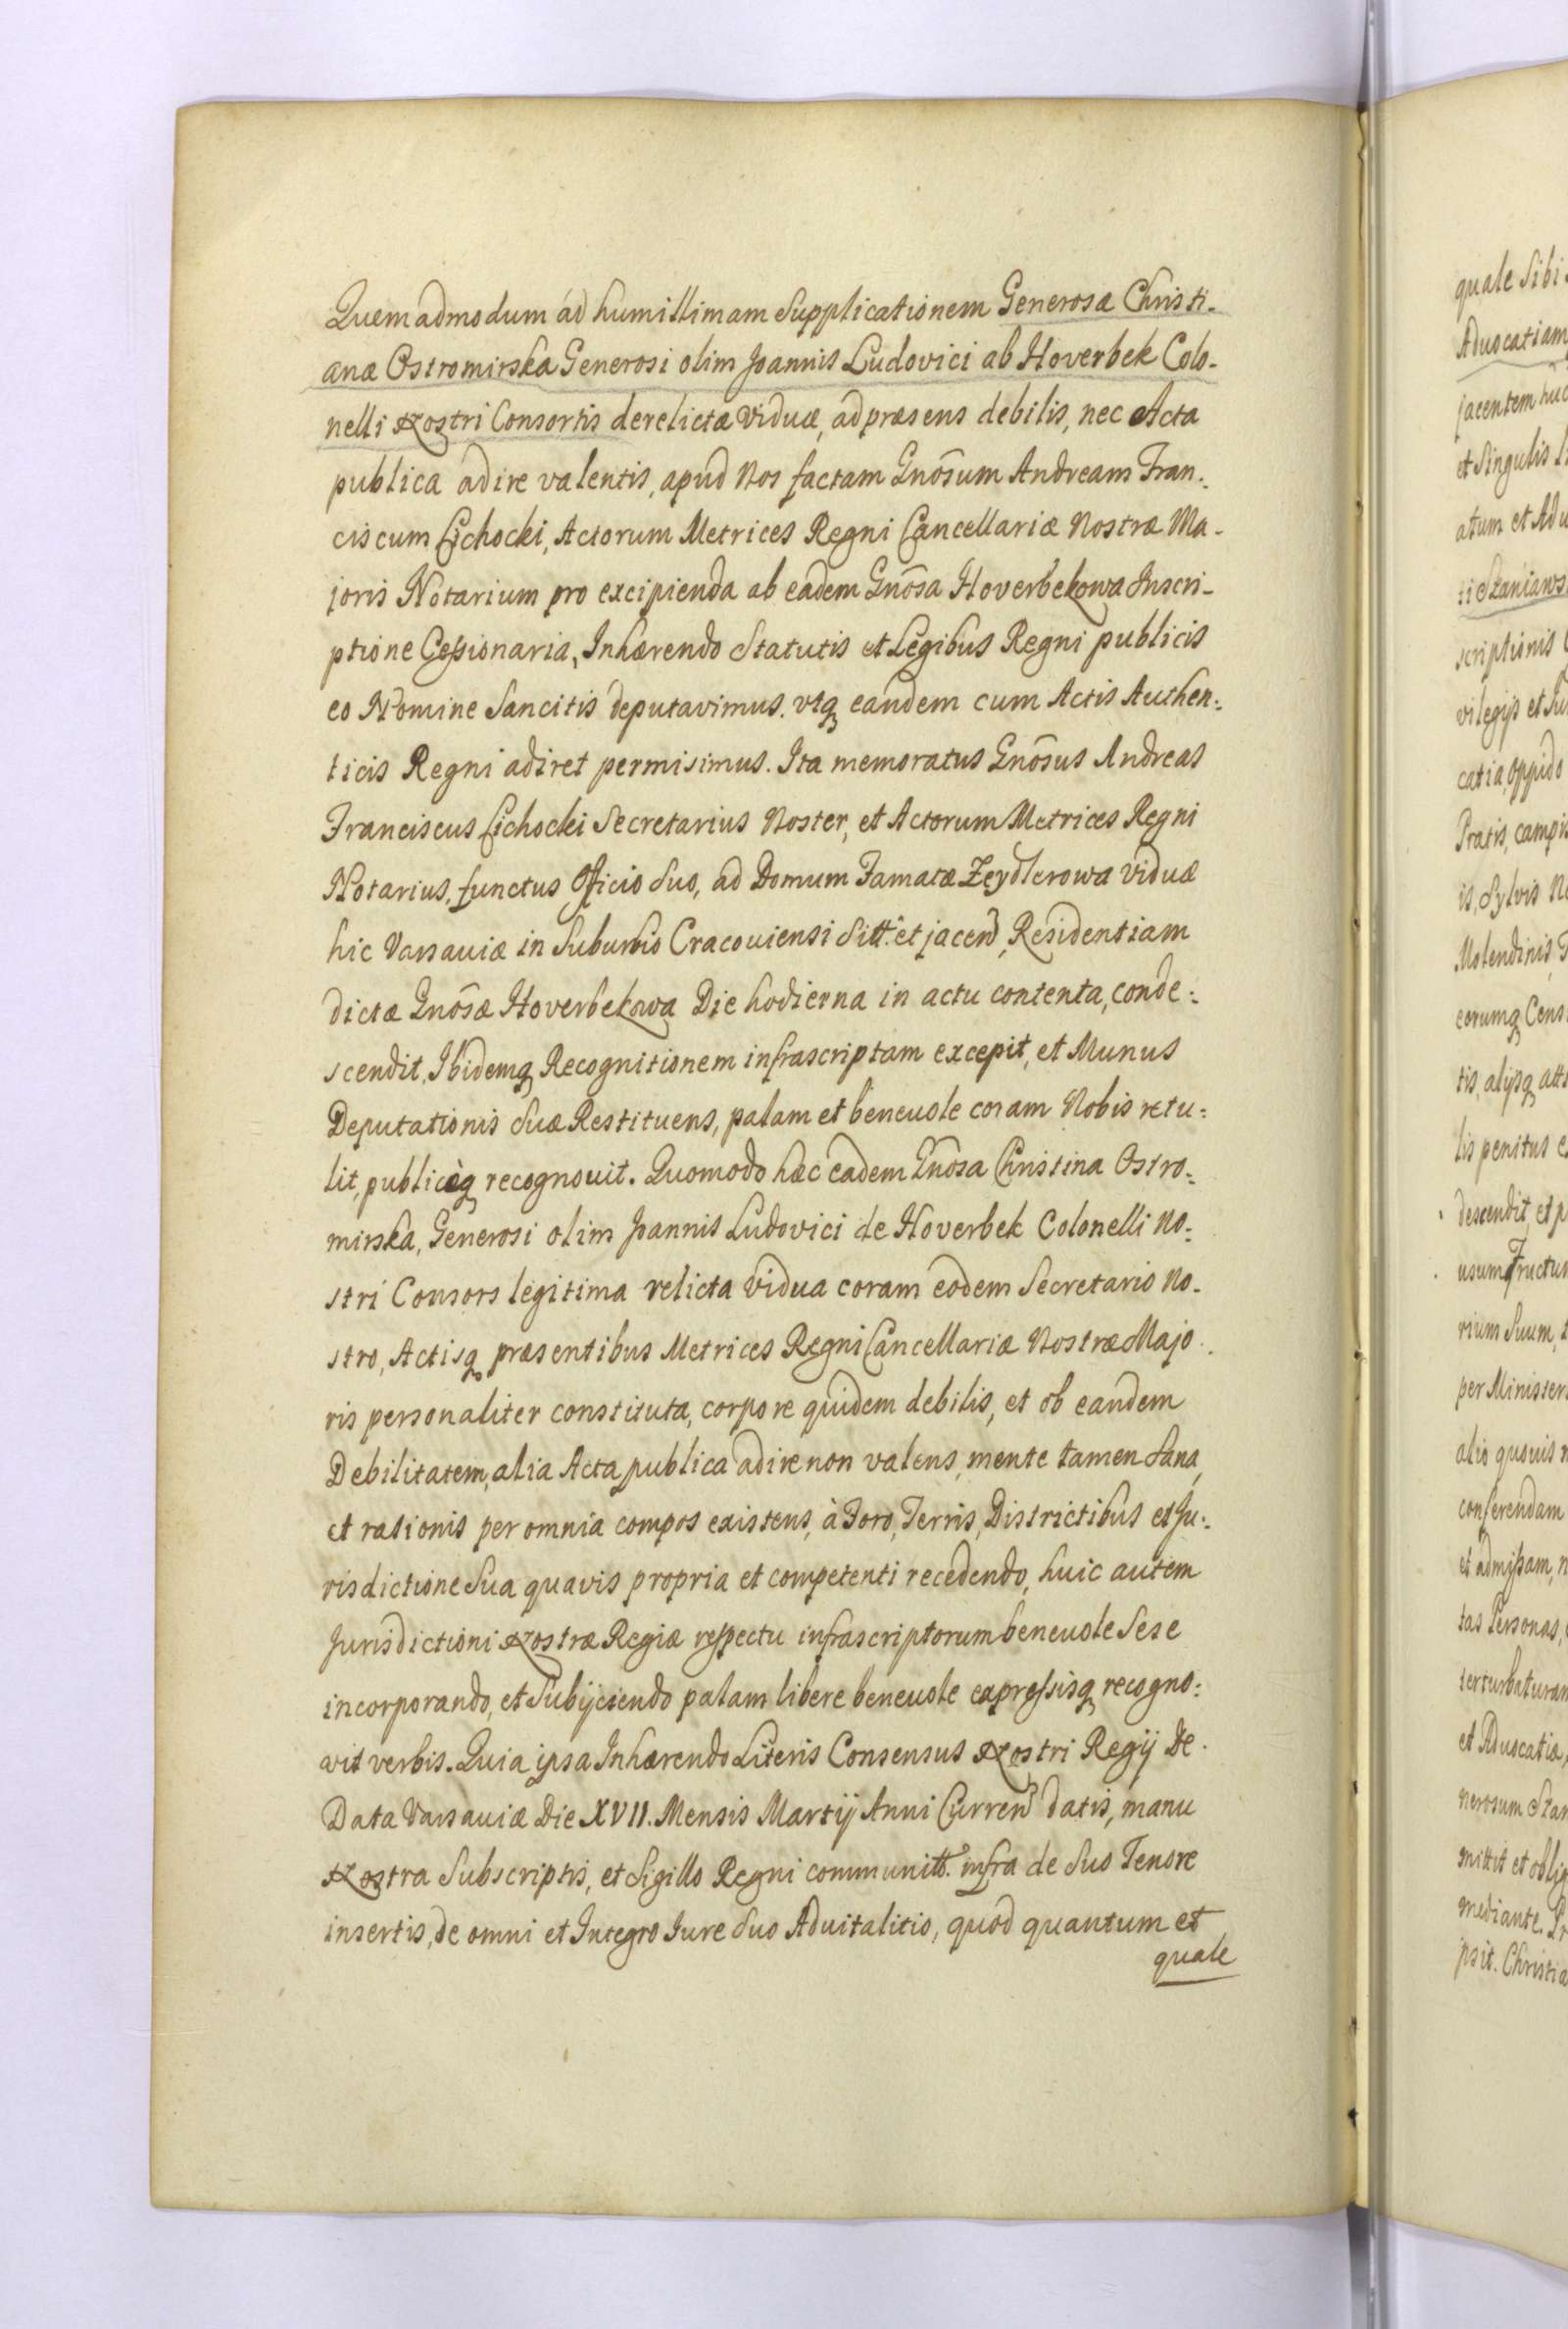 Quemadmodum ad humillimam Supplicationem Generosæ Christi-
anæ Ostromirska Generosi olim Joannis Ludovici ab Hoverbek Colo-
nelli Nostri Consortis derelictæ Viduæ, ad præsens debilis, nec Acta
publica adire valentis, apud Nos factam Gnōsum Andream Fran-
ciscum Cichocki, Actorum Metrices Regni Cancellariæ Nostræ Ma-
joris Notarium pro excipienda ab eadem Gnōsa Hoverbekowa Inscri-
ptione Cessionaria, Inhærendo Statutis et Legibus Regni publicis
eo Nomine Sancitis deputavimus. vtq eandem cum Actis Authen:
ticis Regni adiret permisimus. Ita memoratus Gnōsus Andreas
Franciscus Cichocki Secretarius Noster, et Actorum Metrices Regni
Notarius, functus Officio Suo, ad Domum Famatæ Zeydlerowa Viduæ
hic Varsaviæ in Suburbio Cracoviensi Sitt. et jacen, Residentiam
dictæ Gnōsæ Hoverbekowa Die hodierna in actu contenta, conde:
scendit, Ibidemq Recognitionem infrascriptam excepit, et Munus
Deputationis Suæ Restituens, palam et benevole coram Nobis retu:
lit, publicèq recognouit. Quomodo hæc eadem Gnōsa Christina Ostro:
mirska, Generosi olim Joannis Ludovici de Hoverbek Colonelli No:
stri Consors legitima relicta Vidua coram eodem Secretario No-
stro, Actisq præsentibus Metrices Regni Cancellariæ Nostræ Majo-
ris personaliter constituta, corpore quidem debilis, et ob eandem
Debilitatem, alia Acta publica adire non valens, mente tamen Sana,
et rationis per omnia compos existens, à Foro, Terris, Districtibus et Ju:
risdictione Sua quavis propria et competenti recedendo, huic autem
Jurisdictioni Nostræ Regiæ respectu infrascriptorum beneuole Sese
incorporando, et Subijciendo palam libere beneuole expressisq recogno:
vit verbis. Quia ipsa Inhærendo Literis Consensus Nostri Regij De
Data Varsaviæ Die XVII. Mensis Martij Anni Curren datis, manu
Nostra Subscriptis, et Sigillo Regni communitt. infra de Suo Tenore
insertis, de omni et Integro Iure Suo Aduitalitio, quod quantum et
quale
quale Sibi
Aduocatiam
jacentem huc
et Singulis
atum et Adu
scriptionis
vilegijs et
catia, oppido
Pratis, campis
is, Sylvis
Molendinis,
eorumq Cens
tis, alijsq att
lis penitus
descendit, et p
usumfructum
rium Suum,
per Minister
alio quouis
conferendam
et admissam,
tas Personas,
et Aduocatiæ,
nerosum Stan
mittit et oblig
mediante.
psit. Christia